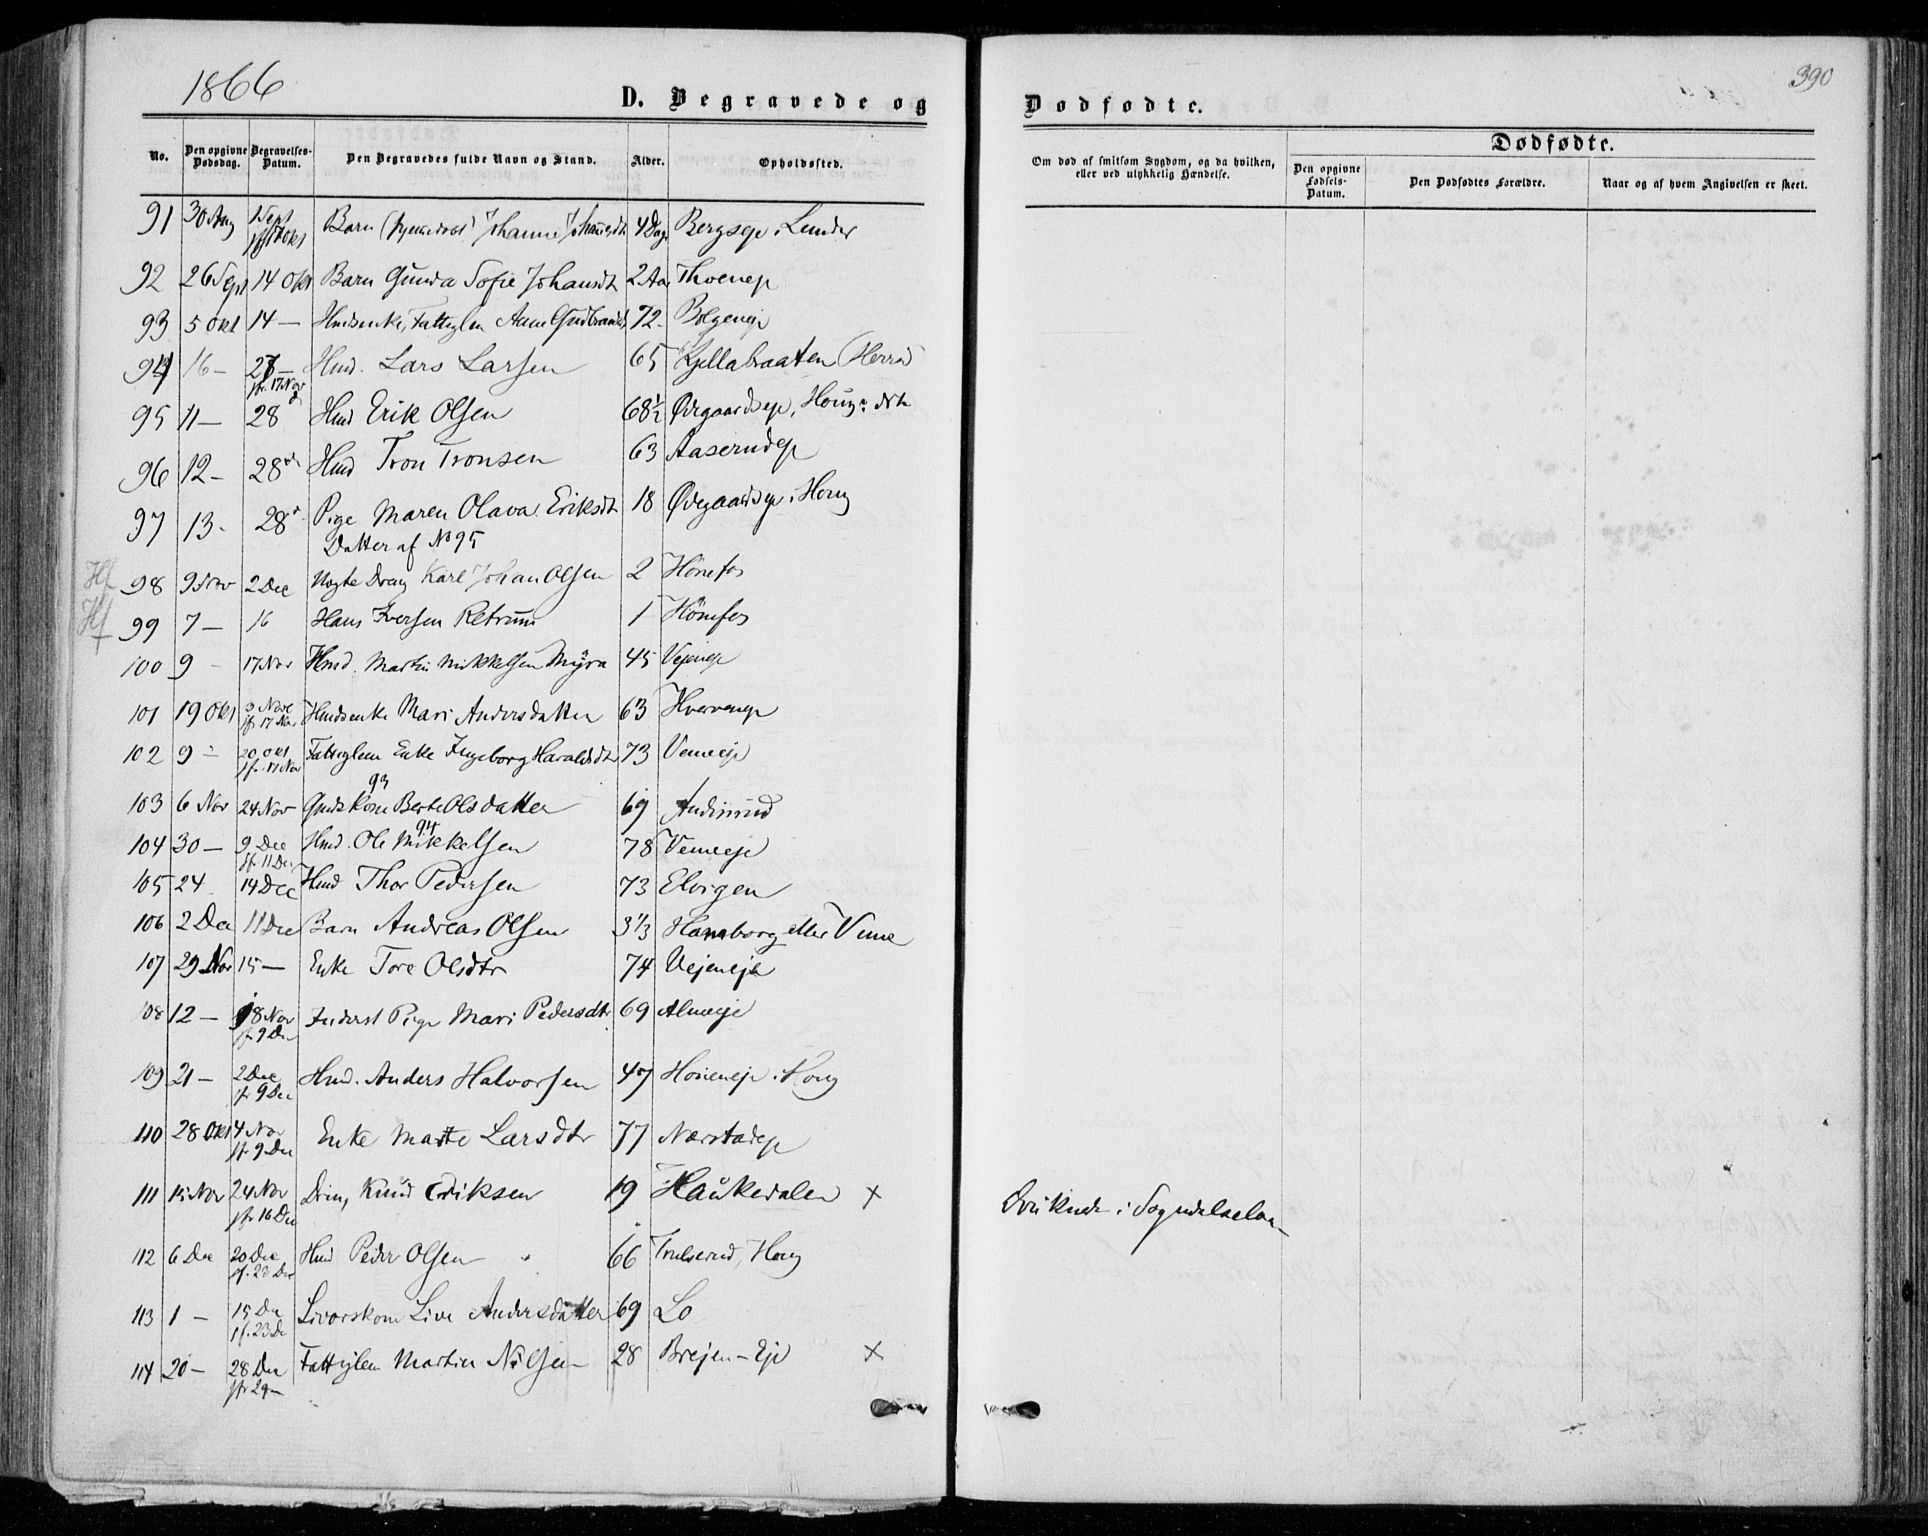 1866
390
D. Begravede og
Dødfødte.
No.
Den opgivne Dødsdag.
Begravelses-Datum.
Den Begravedes fulde Navn og Stand.
Alder.
Opholdssted.
Om død af smitsom Sygdom, og da hvilken, eller ved ulykkelig Hændelse.
Dødfødte.
Den opgivne Fødsels-Datum.
Den Dødfødtes Forældre.
Naar og af hvem Angivelsen er skeet.
91 30 Aug 1 Sept Barn Johanne 4 Dage Bergseje. Lunder
92 26 Sept 14 Okt Barn Gunda Sofie Johansdt 2 Aar Thoeneje
93 5 Okt 14 — Hmdsenke, Fattiglem Anne Gudbrandsd 72 Bolgeneje
94 16 — 27 — Hmd. Lars Larsen 65
jf. 17 Nov
95 11 — 28 Hmd Erik Olsen 68½ Ødegaardseje, Houg
96 12 — 28 Hmd Tron Tronsen 63 Aaserudeje
97 13 - 28 Pige Maren Olava Eriksdt 18 Ødegaardseje. Houg
Datter af No 95
Hf 98 9 Nov 2 Dec Uægte Dreng Karl Johan Olsen 2 Hønefos
Hf 99 7 — 16 Hans Iversen Retrum 1 Hønefos
100 9 - 17 Nov Hmd. Martin Mikkelsen Myra 45 Vejeneje
101 19 Okt 3 Nov Hmdsenke Mari Andersdatter 63 Hverveneje
jf 17 Nov
102 9 - 20 Okt Fattiglem Enke Ingeborg Haraldsdt 73 Vemeeje
jf. 17 Nov
93
103 6 Nov 24 Nov Gmdskone Berte Olsdatter 69
94
104 30 — 9 Dec Hmd. Ole Mikkelsen 78 Vemeeje
jf. 11 Dec
105 24 14 Dec Hmd Thor Pedersen 73 Elvigen
106 2 Dec 11 Dec Barn Andreas Olsen 3 1/3 Hamborg eller Veme
107 29 Nov 15 — Enke Tore Olsdtr 74 Vejeneje
108 12 — 18 Nov Inderst Pige Mari Pedersdtr 69 Almeje
jf. 9 Dec
109 21 — 2 Dec Hmd. Anders Halvorsen 47 Høneneje. Houg
jf 9 Dec
110 28 Okt 4 Nov Enke Matte Larsdtr 77 Nærstadeje
jf. 9 Dec
111 15 Nov 24 Nov Dreng, Knud Eriksen 19 Haukedalen × Druknede i Sogndalselven
jf. 16 Dec
112 6 Dec 20 Dec Hmd Peder Olsen 66 Trulserud, Houg
jf. 23 Dec
113 1 — 15 Dec Livørskone Live Andersdatter 69 Lo
jf. 23 De
114 20 — 28 Dec Fattiglem Martin Nilsen 28 Brejen-Eje ×
jf 29 —